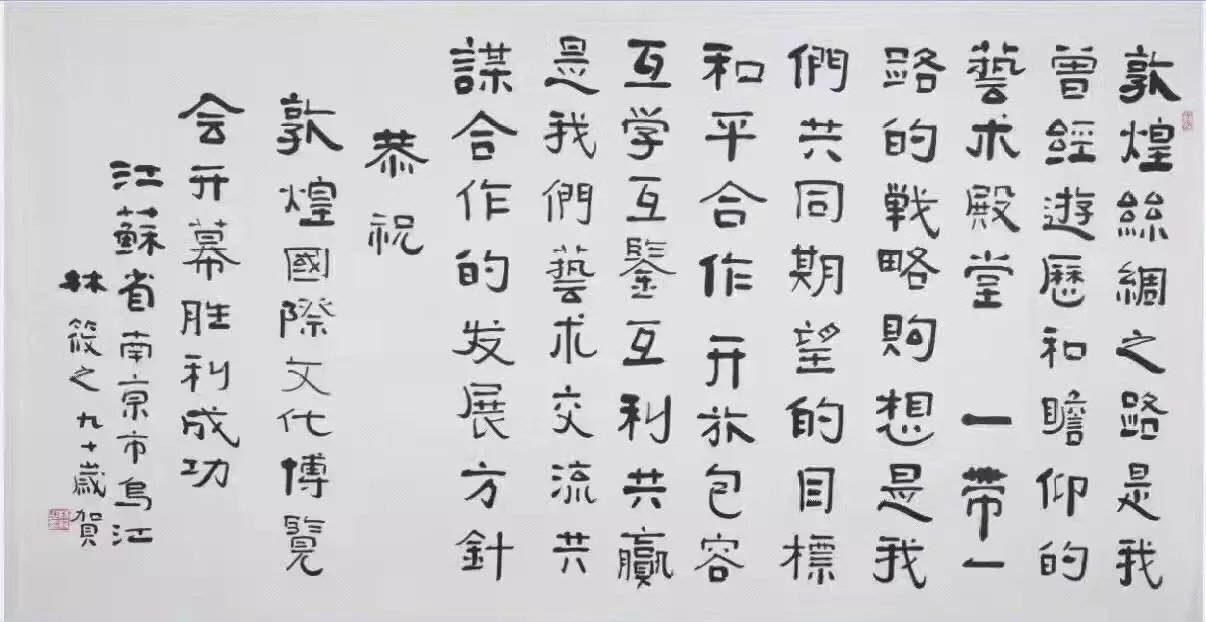 敦煌絲綢之路是我
曾經遊歷和瞻仰的
藝术殿堂一帶一
路的戰略興想是我
們共同期望的目標
和平合作开放包容
互学互鑒互利共贏
是我們藝术交流共
謀合作的发展方針
恭祝
敦煌國際文化博覽
会开幕胜利成功
江蘇省南京市烏江
林筱之九十歲賀